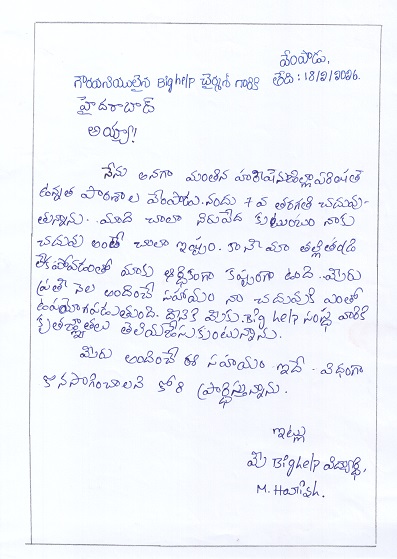 వేంపాడు,
గౌరవనీయులైన Bighelp ఛైర్మన్ గారికి తేది : 18/2/2026.
హైదరాబాద్
అయ్యా!
నేను అనగా
ఉన్నత పాఠశాల వేంపాడు. నందు 7 వ తరగతి చదువు-
తున్నాను. మాది చాలా నిరుపేద కుటుంబం నాకు
చదువు అంటే చాలా ఇష్టం. కానీ మా తల్లితండ్రి
లేకపోవడంతో మాకు ఆర్థికంగా కష్టంగా ఉంది. మీరు
ప్రతి నెల అందించే సహాయం నా చదువుకి ఎంతో
ఉపయోగపడుతుంది. దానికి మీకు. Big help సంస్థ వారికి
కృతజ్ఞతలు తెలియజేసుకుంటున్నాను.
మీరు అందించే ఈ సహాయం ఇదే. విధంగా
కొనసాగించాలని కోరి ప్రార్థిస్తున్నాను.
ఇట్లు
మీ Bighelp విద్యార్థి,
M. Harish.